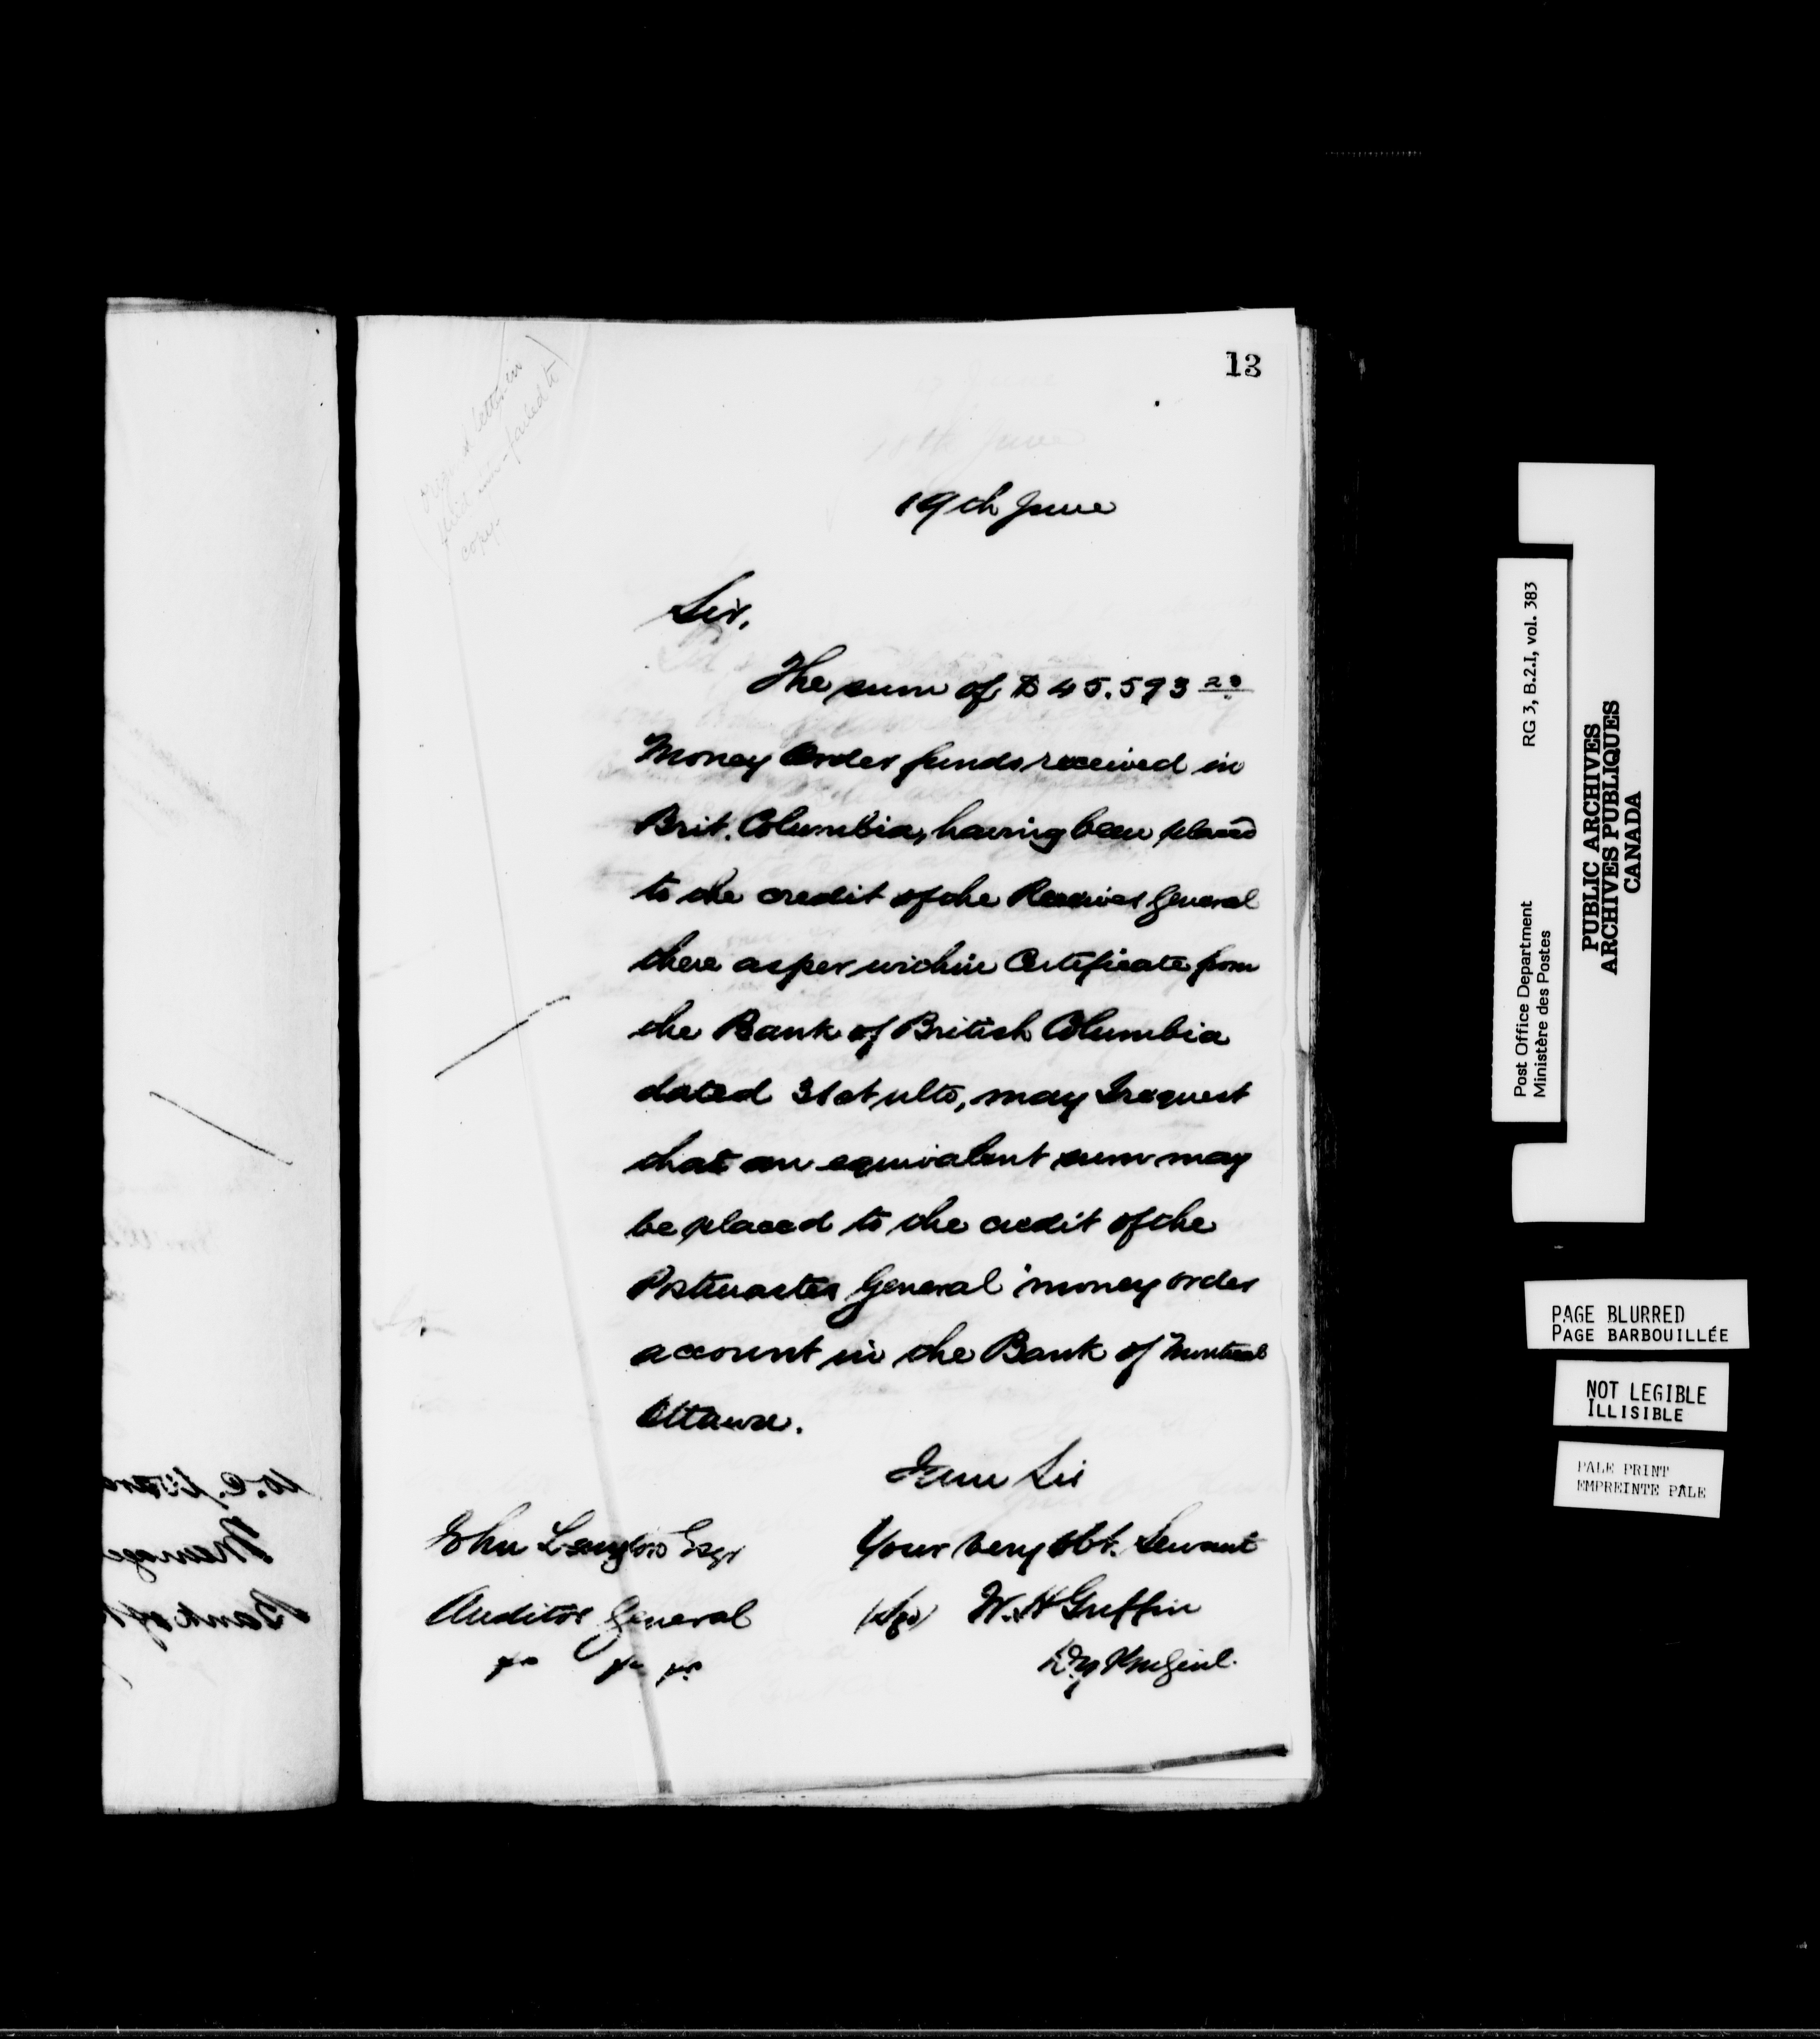 13
copy.
19th June
Sir,
The sum of $45.593 23
Money Order funds received in
Brit. Columbia, having been placed
to the credit of the Receiver General
there as per within Certificate from
the Bank of British Columbia
dated 31st ulto, may I request
that an equivalent sum may
be placed to the credit of the
Postmaster General money order
account in the Bank of Montreal
Ottawa.
I am Sir
Your very Obt. Servant
(sgd) W. H Griffin
Dy PmGenl.
John Langton Esqr
Auditor General
Post Office Department
Ministère des Postes
RG 3, B.2.I, vol. 383
PUBLIC ARCHIVES
ARCHIVES PUBLIQUES
CANADA
PAGE BLURRED
PAGE BARBOUILLÉE
NOT LEGIBLE
ILLISIBLE
PALE PRINT
EMPREINTE PÂLE